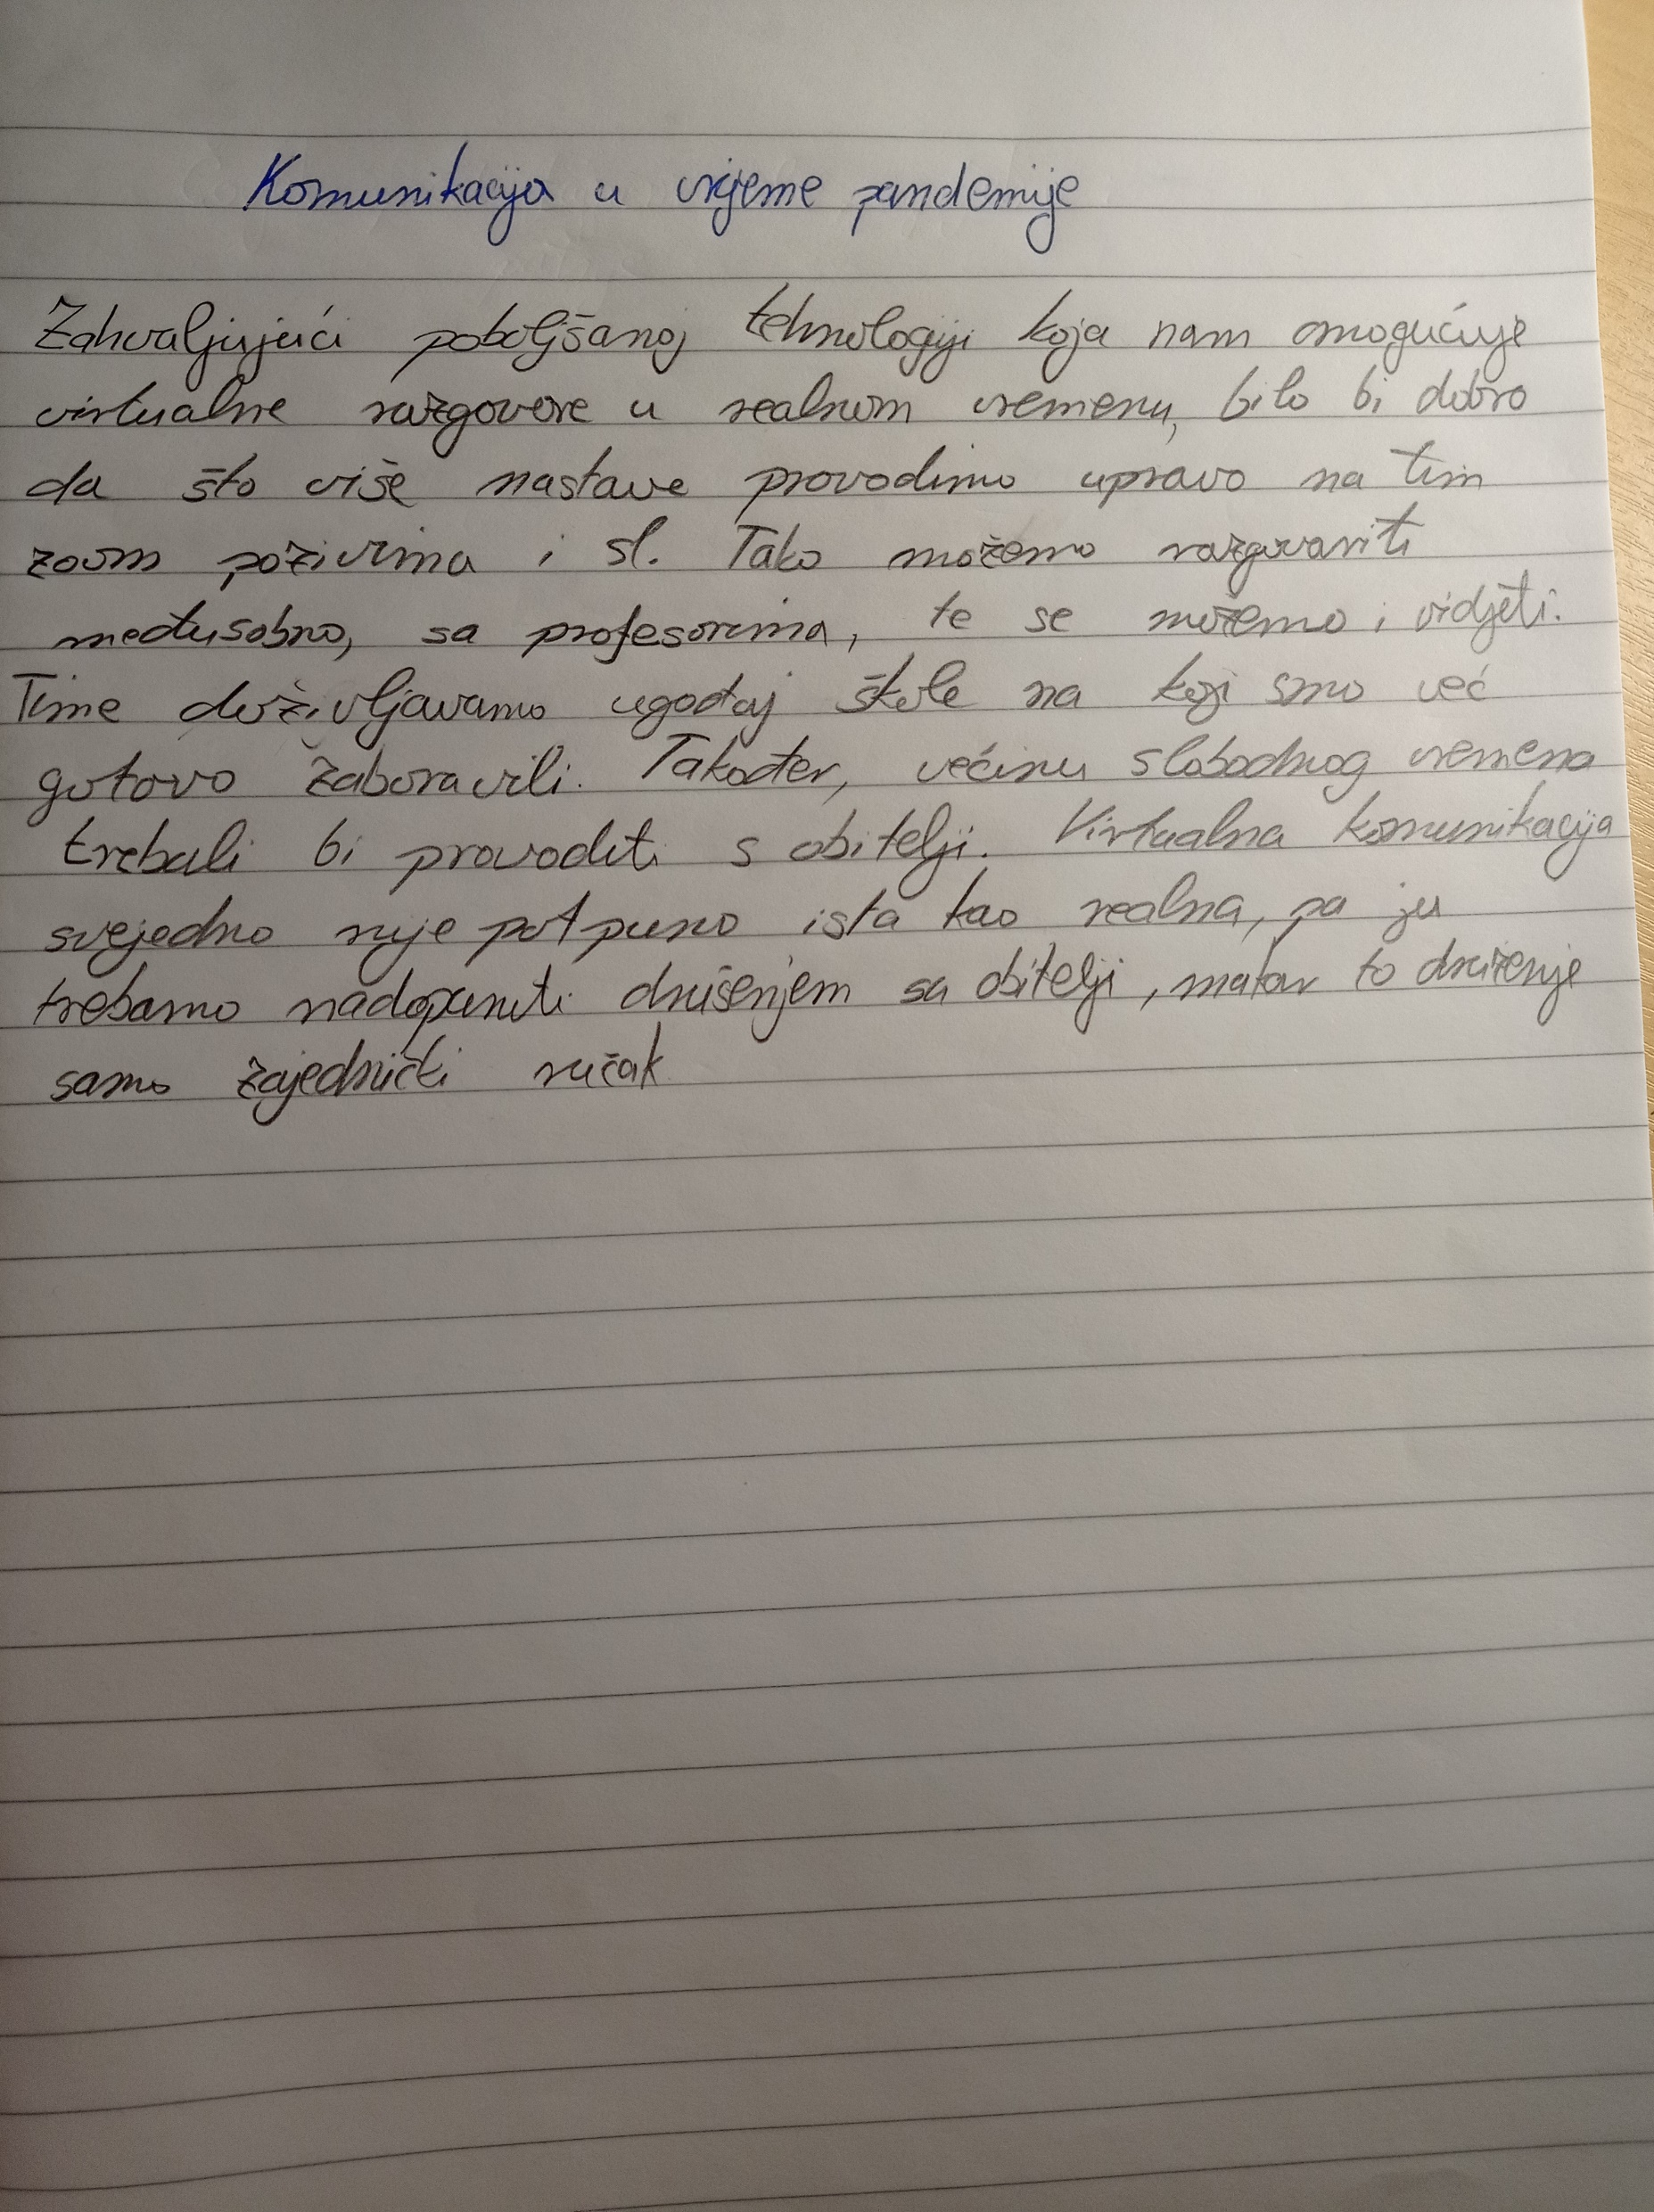 Komunikacija u vrijeme pandemije
Zahvaljujući poboljšanoj tehnologiji koja nam omogućuje
virtualne razgovore u realnom vremenu, bilo bi dobro
da što više nastave provodimo upravo na tim
zoom pozivima i sl. Tako možemo razgovarati
međusobno, sa profesorima, te se možemo i vidjeti.
Time doživljavamo ugođaj škole na koji smo već
gotovo zaboravili. Također, većinu slobodnog vremena
trebali bi provoditi s obitelji. Virtualna komunikacija
svejedno nije potpuno ista kao realna, pa ju
trebamo nadopuniti druženjem sa obitelji, makar to druženje
samo zajednički ručak